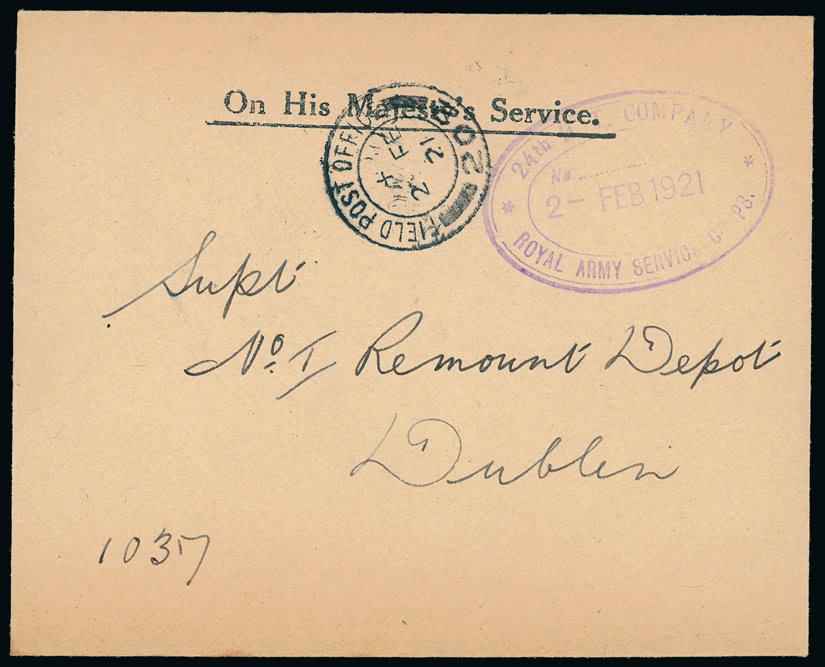 On His Majesty's Service.
FIELD POST OFFICE
2 FE
21
24 COMPANY
No.
2 - FEB 1921
ROYAL ARMY SERVICE CPS.
Supt
No. 1 Remount Depot
Dublin
1037